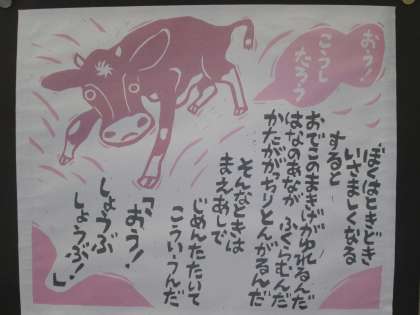 おう!
こうし
たろう
ぼくはときどき
いさましくなる
すると
おでこのまきげがゆれるんだ
はなのあなが ふくらむんだ
かたががっちりとんがるんだ
そんなときは
まえあしで
じめんたたいて
こういうんだ
「おう!
しょうぶ
しょうぶ!」